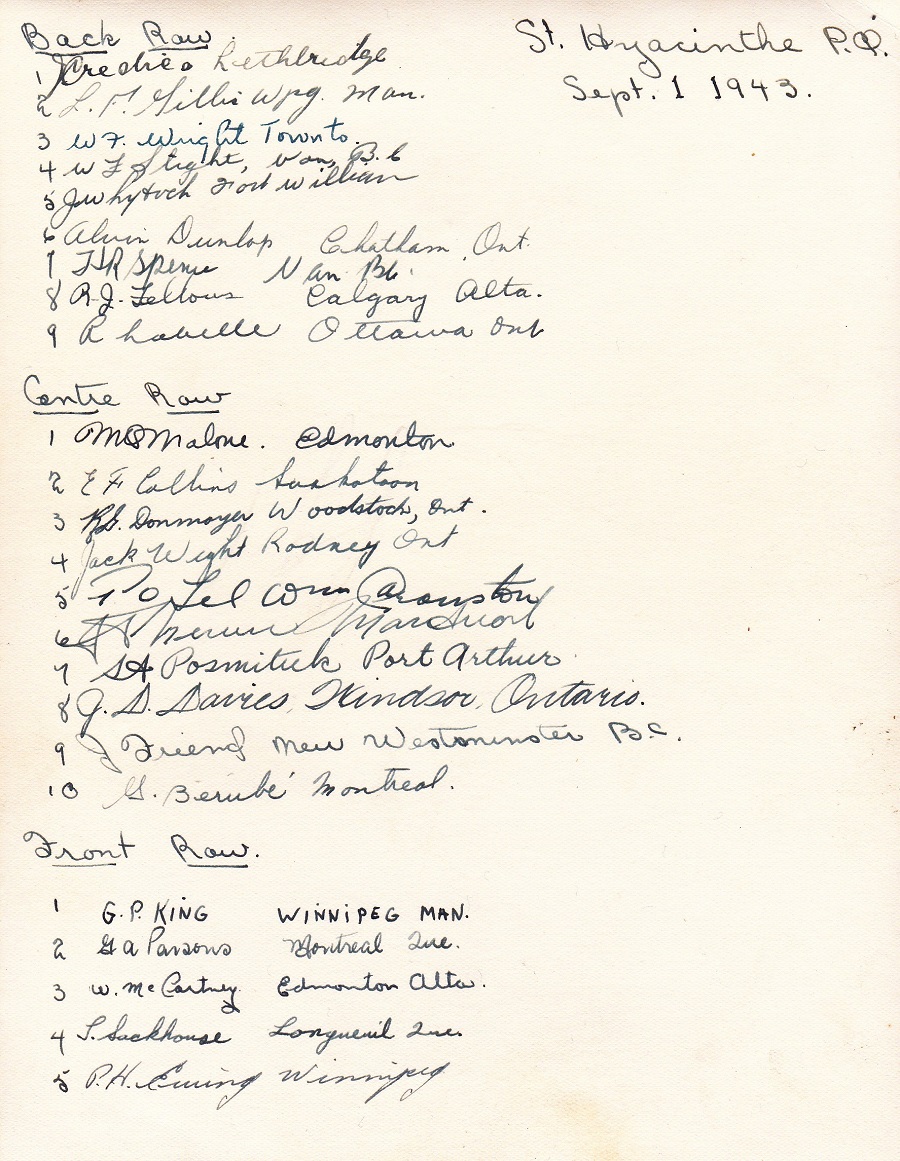 Back Row.
St. Hyacinthe P.Q.
Sept. 1 1943.
1 Lethbridge
2 L. F. Gillis Wpg. Man.
3 W F. Wright Toronto.
4 W Stight, Van, B.C
5 J Whytock Fort William
6 Alvin Dunlop Chatham, Ont.
7 Spence Van BC.
8 R.J. Fellows Calgary Alta.
9 R Labelle Ottawa Ont
Centre Row
1 Malone. Edmonton
2 E F Collins Saskatoon
3 R.G. Donmoyer Woodstock, Ont.
4 Jack Wight Rodney Ont
5 P.O. Tel
6
7 SA Posmituck Port Arthur.
8 J. D. Davies, Windsor, Ontario.
9 J Friend New Westminster B.C.
10 G. Bérubé Montreal.
Front Row.
1 G.P. KING WINNIPEG MAN.
2 G A Parsons Montreal Que.
3 W. McCartney Edmonton Alta.
4 Sackhouse Longueuil Que.
5 P.H. Ewing Winnipeg